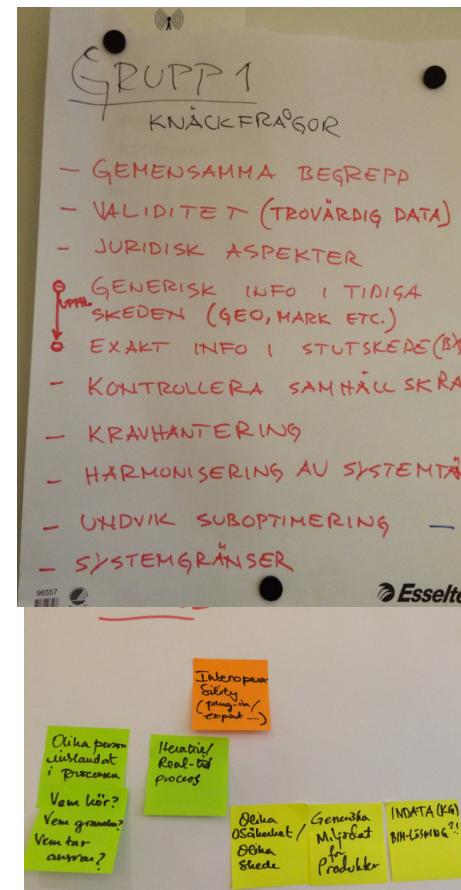 GRUPP 1
KNÄCKFRÅGOR
- GEMENSAMMA BEGREPP
- VALIDITET (TROVÄRDIG DATA)
- JURIDISK ASPEKTER
GENERISK INFO I TIDIGA
UPPH.
SKEDEN (GEO, MARK ETC.)
EXAKT INFO I STUTSKEDE (B
- KONTROLLERA SAMHÄLLSKRA
- KRAVHANTERING
- HARMONISERING AV SYSTEMTÄ
- UNDVIK SUBOPTIMERING -
- SYSTEMGRÄNSER
96557
Esselte
Interopera-
bility
(plug-in/
export ....)
Olika person
inblandat
i processen
Iterativ/
Real-tid
process
Vem kör?
Vem granskar?
Vem tar
ansvar?
Olika
Osäkerhet/
Olika
Skede
Generiska
Miljödat
för
Produkter
INDATA (KG)
BIM-LÖSNING?!